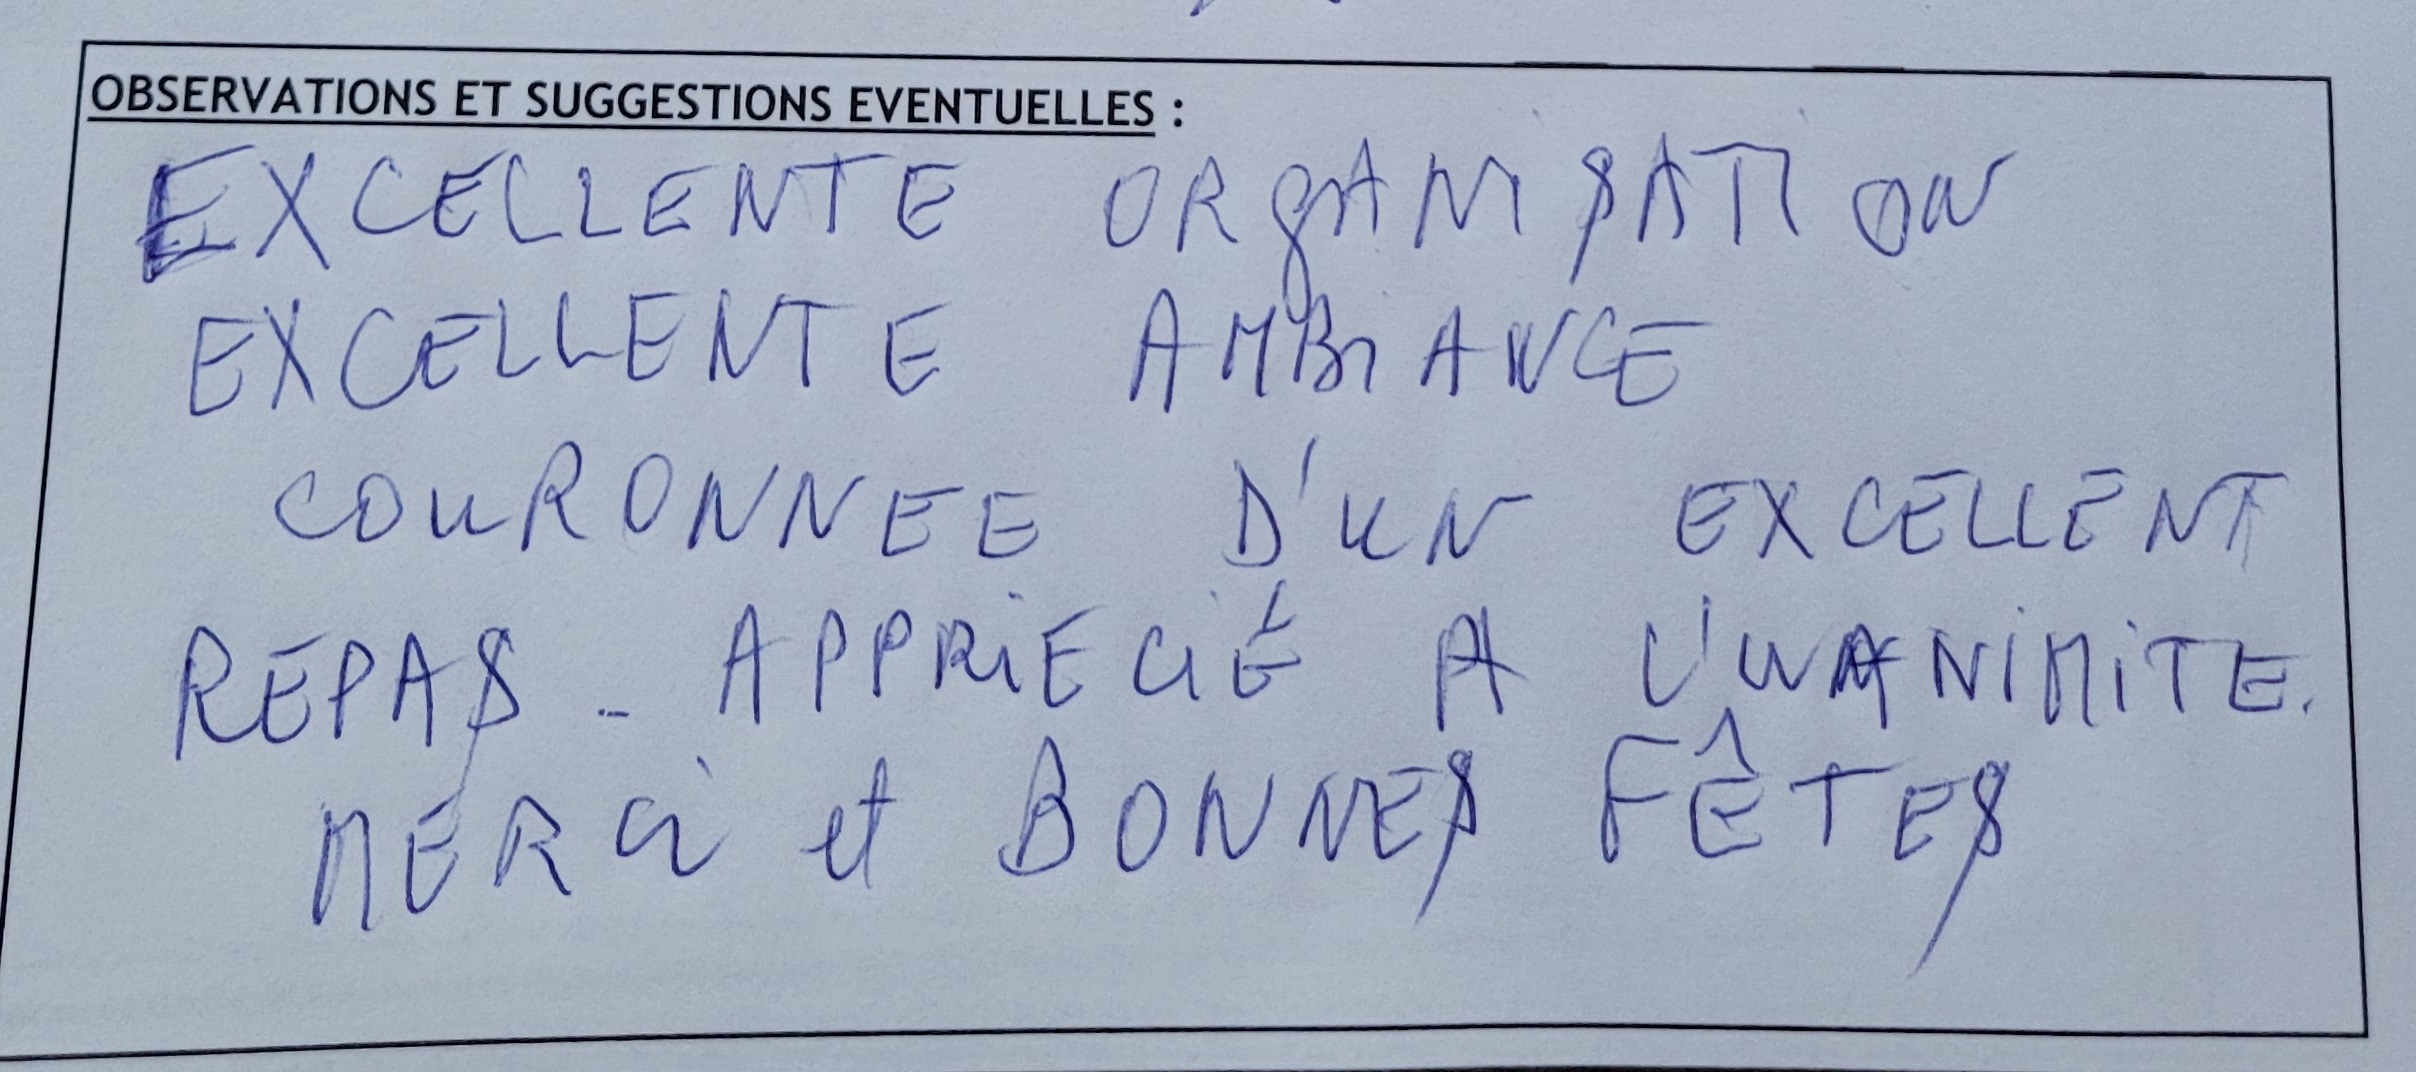 OBSERVATIONS ET SUGGESTIONS EVENTUELLES :
EXCELLENTE ORgANISATION
EXCELLENTE AMBiANCE
COURONNEE D'UN EXCELLENT
REPAS - APPRiECiÉ A L'UNANiMiTE.
MERCi et BONNES FÊTES